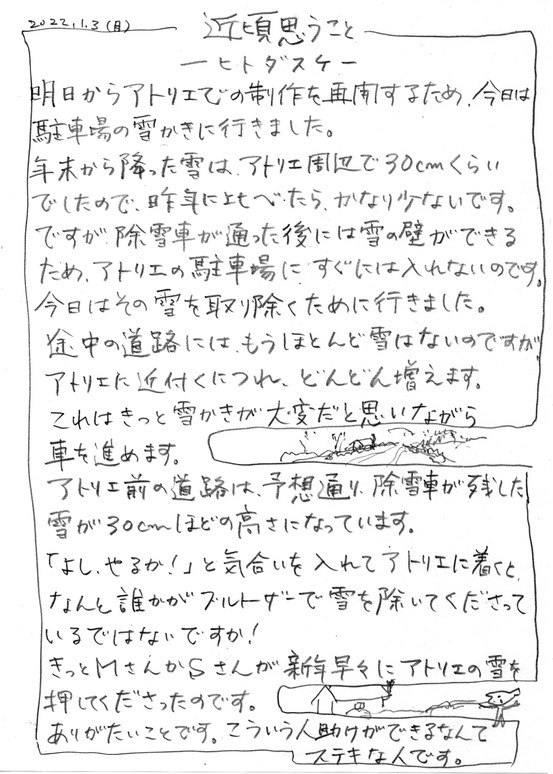 2022.1.3(月)
近頃思うこと
ーヒトダスケー
明日からアトリエでの制作を再開するため、今日は
駐車場の雪かきに行きました。
年末から降った雪は、アトリエ周辺で30cmくらい
でしたので、昨年に比べたら、かなり少ないです。
ですが、除雪車が通った後には雪の壁ができる
ため、アトリエの駐車場に、すぐには入れないのです。
今日はその雪を取り除くために行きました。
途中の道路には、もうほとんど雪はないのですが、
アトリエに近付くにつれ、どんどん増えます。
これはきっと雪かきが大変だと思いながら
車を進めます。
アトリエ前の道路は、予想通り、除雪車が残した
雪が30cmほどの高さになっています。
「よし、やるか!」と気合いを入れてアトリエに着くと、
なんと誰かがブルトーザーで雪を除いてくださって
いるではないですか!
きっとMさんかSさんが新年早々にアトリエの雪を
押してくださったのです。
ありがたいことです。こういう人助けができるなんて
ステキな人です。